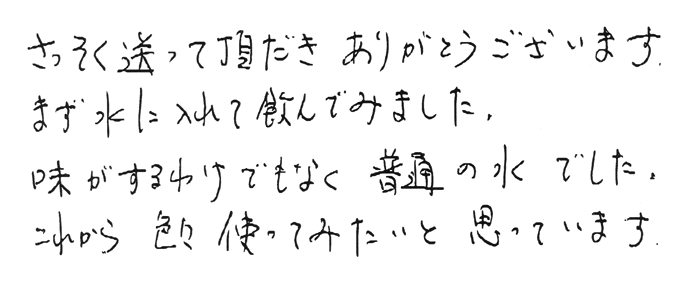 さっそく送って頂だき ありがとうございます.
まず水に入れて飲んでみました.
味がするわけでもなく 普通の水でした.
これから 色々 使ってみたいと 思っています.